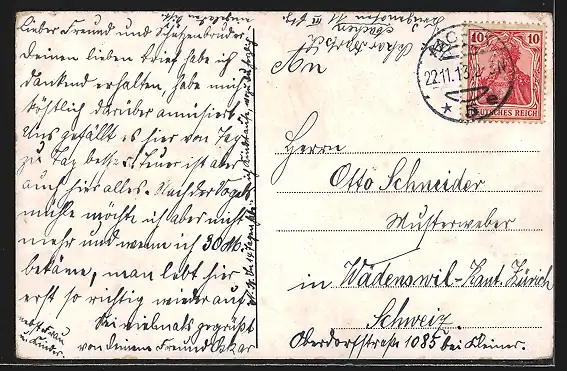 Lieber Freund und Schützenbruder.
Deinen lieben Brief habe ich
dankend erhalten, habe mich
köstlich darüber amüsiert.
Uns gefällt es hier von Tag
zu Tag besser. Teuer ist aber
auch hier alles. Nach der Vogel-
mühle möchte ich aber nicht
mehr und wenn ich 30 M
bekäme, man lebt hier
erst so richtig wieder auf.
Sei vielmals gegrüßt
von deinem Freund Oskar
nebst Frau
u. Kinder.
An
Herrn
Otto Schneider
Musterweber
in Wädenswil-Kant. Zürich
Schweiz.
Oberdorfstraße 1085 bei Kleiner.
22.11.13
10 10
DEUTSCHES REICH